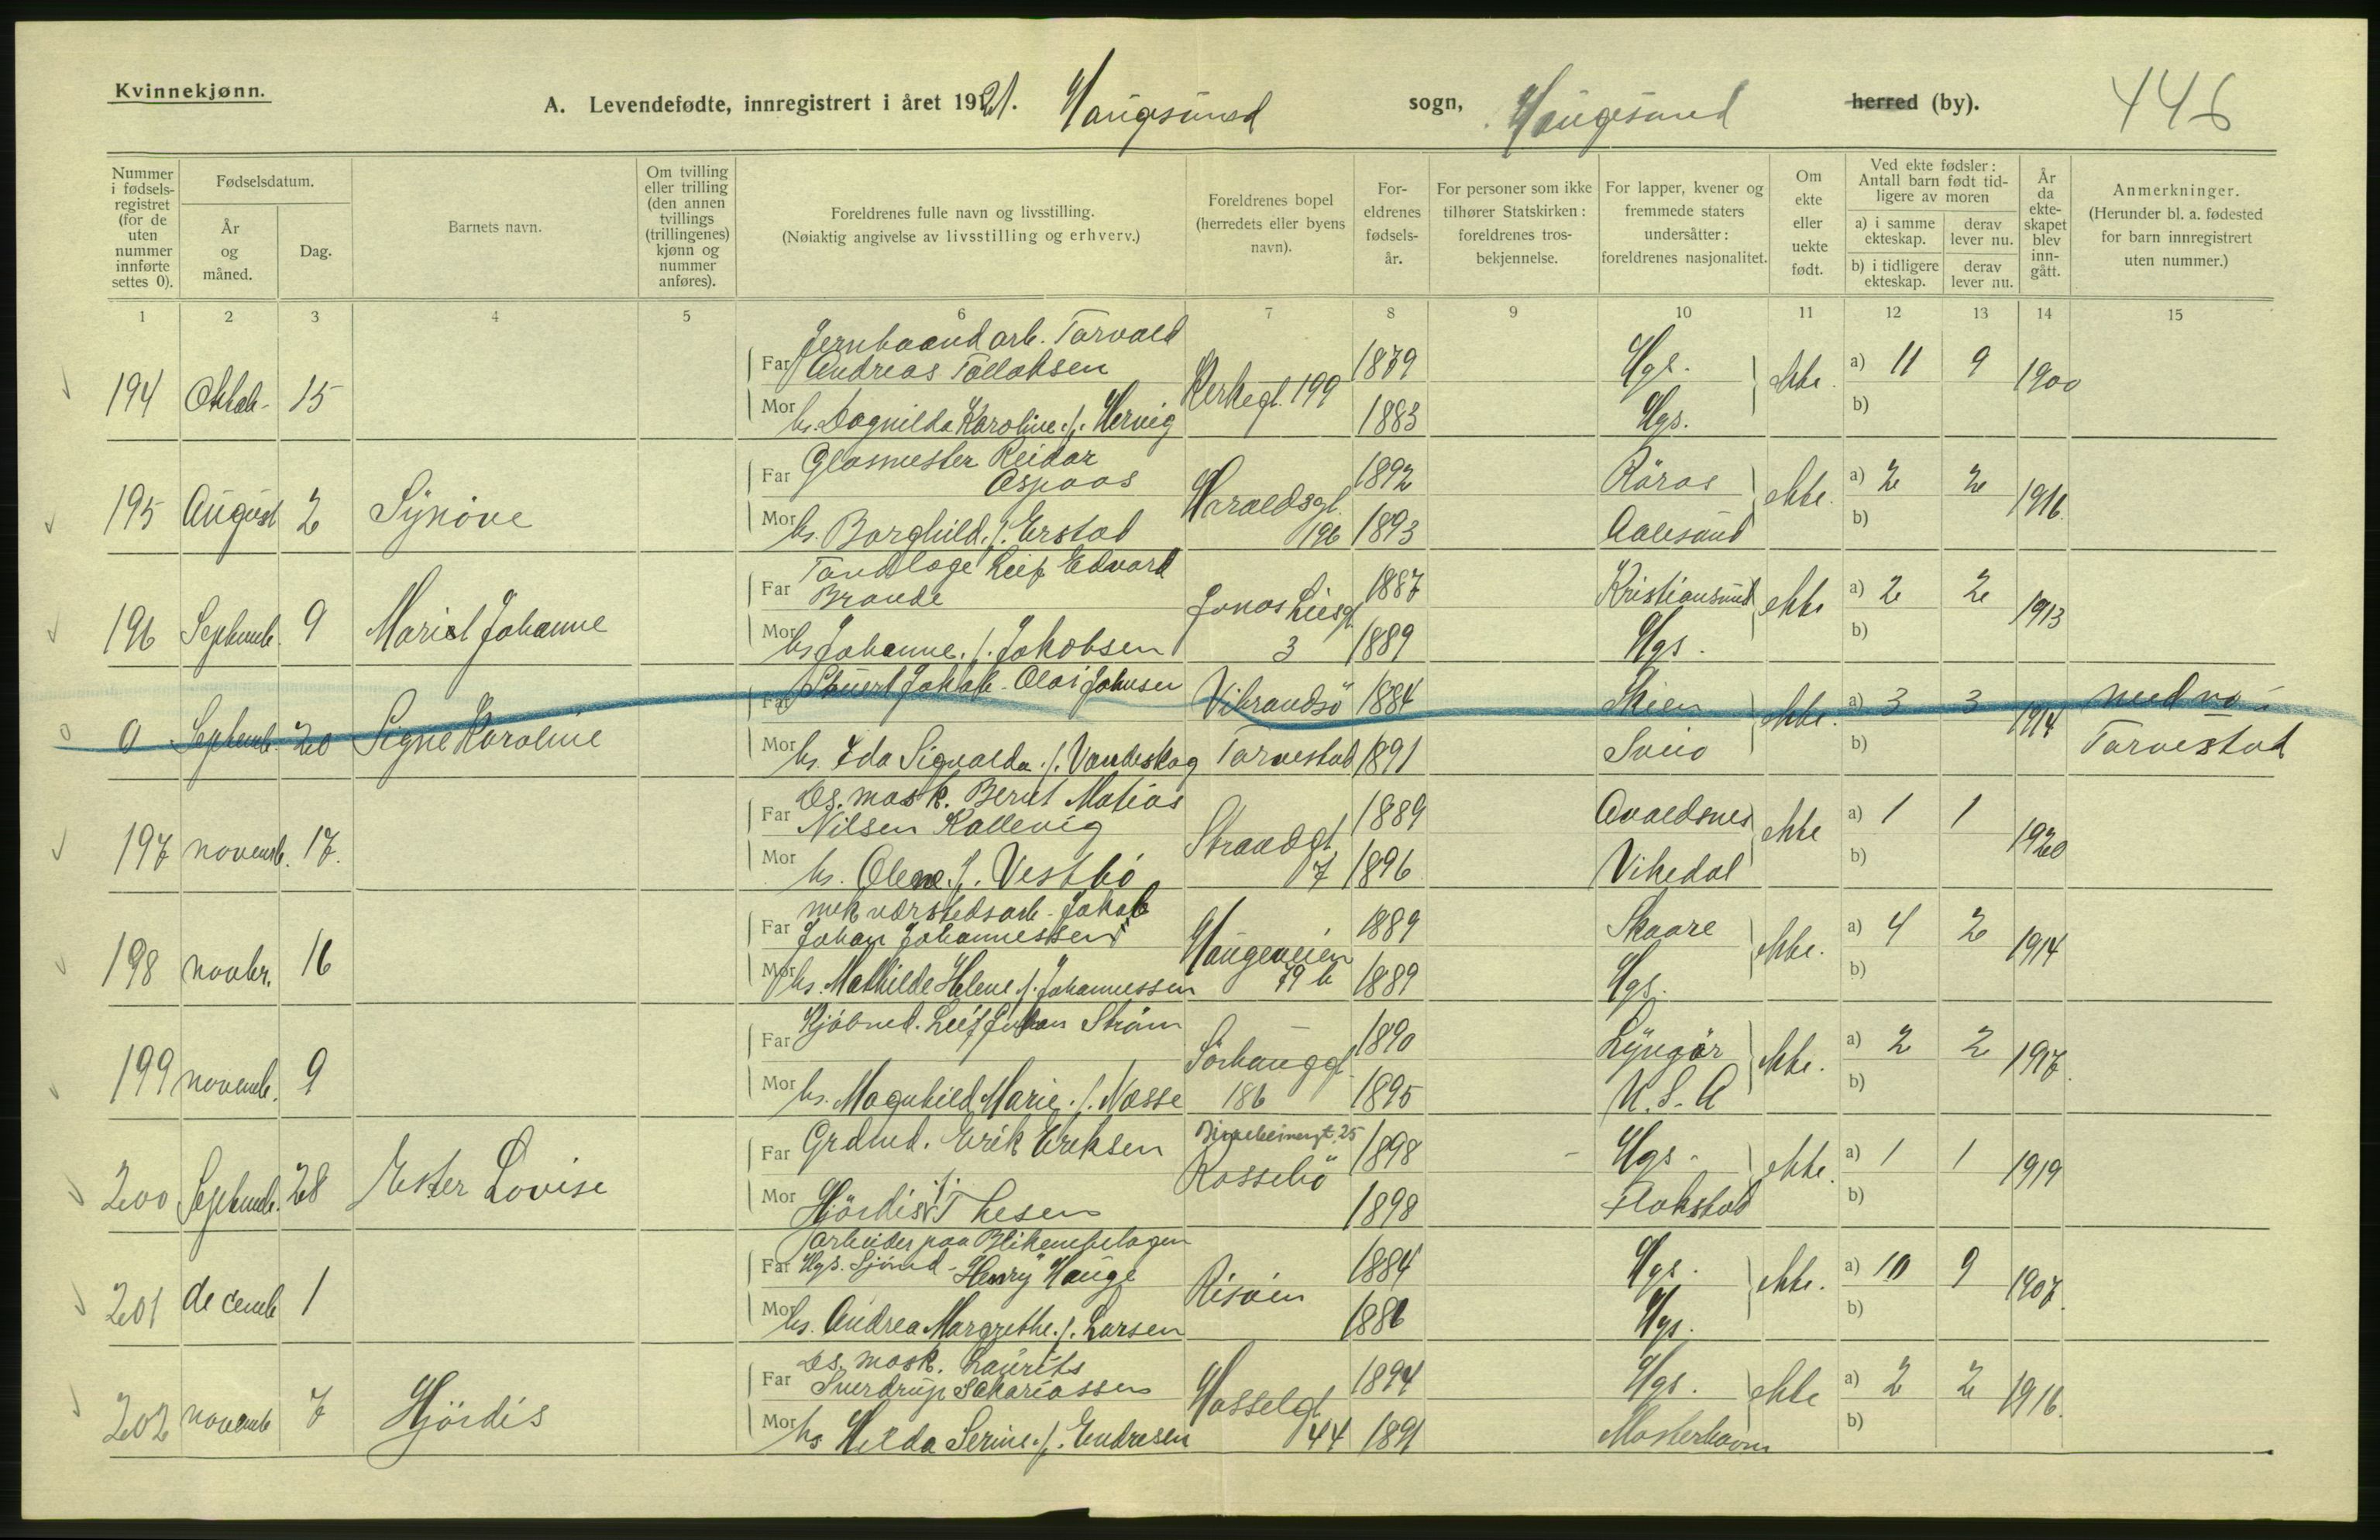 Kvinnekjønn.
A. Levendefødte, innregistrert i året 1921. Haugesund sogn, Haugesund herred (by). 446
Nummer i fødsels-registret (for de uten nummer innførte settes 0).
Fødselsdatum.
År og måned.
Dag.
Barnets navn.
Om tvilling eller trilling (den annen tvillings (trillingenes) kjønn og nummer anføres).
Foreldrenes fulle navn og livsstilling.
(Nøiaktig angivelse av livsstilling og erhverv.)
Foreldrenes bopel (herredets eller byens navn).
For-eldrenes fødsels-år.
For personer som ikke tilhører Statskirken: foreldrenes tros-bekjennelse.
For lapper, kvener og fremmede staters undersåtter: foreldrenes nasjonalitet.
Om ekte eller uekte født.
Ved ekte fødsler: Antall barn født tid-ligere av moren
a) i samme ekteskap.
derav lever nu.
b) i tidligere ekteskap.
derav lever nu.
År da ekte-skapet blev inn-gått.
Anmerkninger.
(Herunder bl. a. fødested for barn innregistrert uten nummer.)
1 2 3 4 5 6 7 8 9 10 11 12 13 14 15
Tarvald
194 15 Far Andreas Tollaksen Kirkegt. 199 1879 Hgs. ekte. a) 11 9 1900
Mor hs. Dagnilda Karoline f. Hervig 1883 Hgs. b)
Glasmester Reidar
195 August 2 Synöve Far Aspaas Haraldsgt. 196 1892 Röros ekte. a) 2 2 1916.
Mor hs. Borghild f. Erstad 1893 Aalesund b)
Tandlæge Leif Edvard
196 Septemb. 9 Mariel Johanne Far Braude Jonas Liesgt. 3 1887 Kristiansund ekte a) 2 2 1913
Mor hs Johanne f. Jakobsen 1889 Hgs. b)
0 Septemb. 20 Signe Karoline Far Jakob Olai Johnsen Vibrandsö 1884 Skien ekte. a) 3 3 1914
Mor hs. Eda Signalda f. Vandeskog Tarvestad 1891 Sveio b) Tarvestad
Ds. mask. Bernt Matias
197 novemb. 17. Far Nilsen Kallevig Strandgt. 7 1889 Avaldsnes ekte a) 1 1 1920
Mor hs. Olene f. Vestbö 1896 Vikedal b)
mek værstedsarb. Jakob
198 novbr. 16 Far Johan Johannessen Haugeveien 79 b 1889 Skaare ekte. a) 4 2 1914
Mor hs. Mathilde Helene f. Johannessen 1889 Hgs. b)
199 novemb. 9 Far Kjöbmd. Leif Johan Ström Sörhauggt. 186 1890 Lyngör ekte. a) 2 2 1917.
Mor hs. Magnhild Marie f. Næsse 1895 U. S. A b)
200 Septemb. 28 Ester Lovise Far Grdmd. Erik Eriksen Birkebeinergt. 25 Rossebö 1898 Hgs. ekte. a) 1 1 1919
Mor Hjördis f. Thesen 1898 Flakstad b)
arbeider paa Blikemballagen
201 decemb 1 Far Hgs. Sjömd - Henry Hauge Risöien 1884 Hgs. ekte. a) 10 9 1907.
Mor hs. Andrea Margrethe f. Larsen 1886 Hgs. b)
Ds. mask. Laurits
202 novemb 7 Hjördis Far Sverdrup Sakariassen Hasselgt. 44 1894 Hgs. ekte a) 2 2 1916.
Mor hs Hilda Serine f. Endresen 1891 Mosterhavn b)